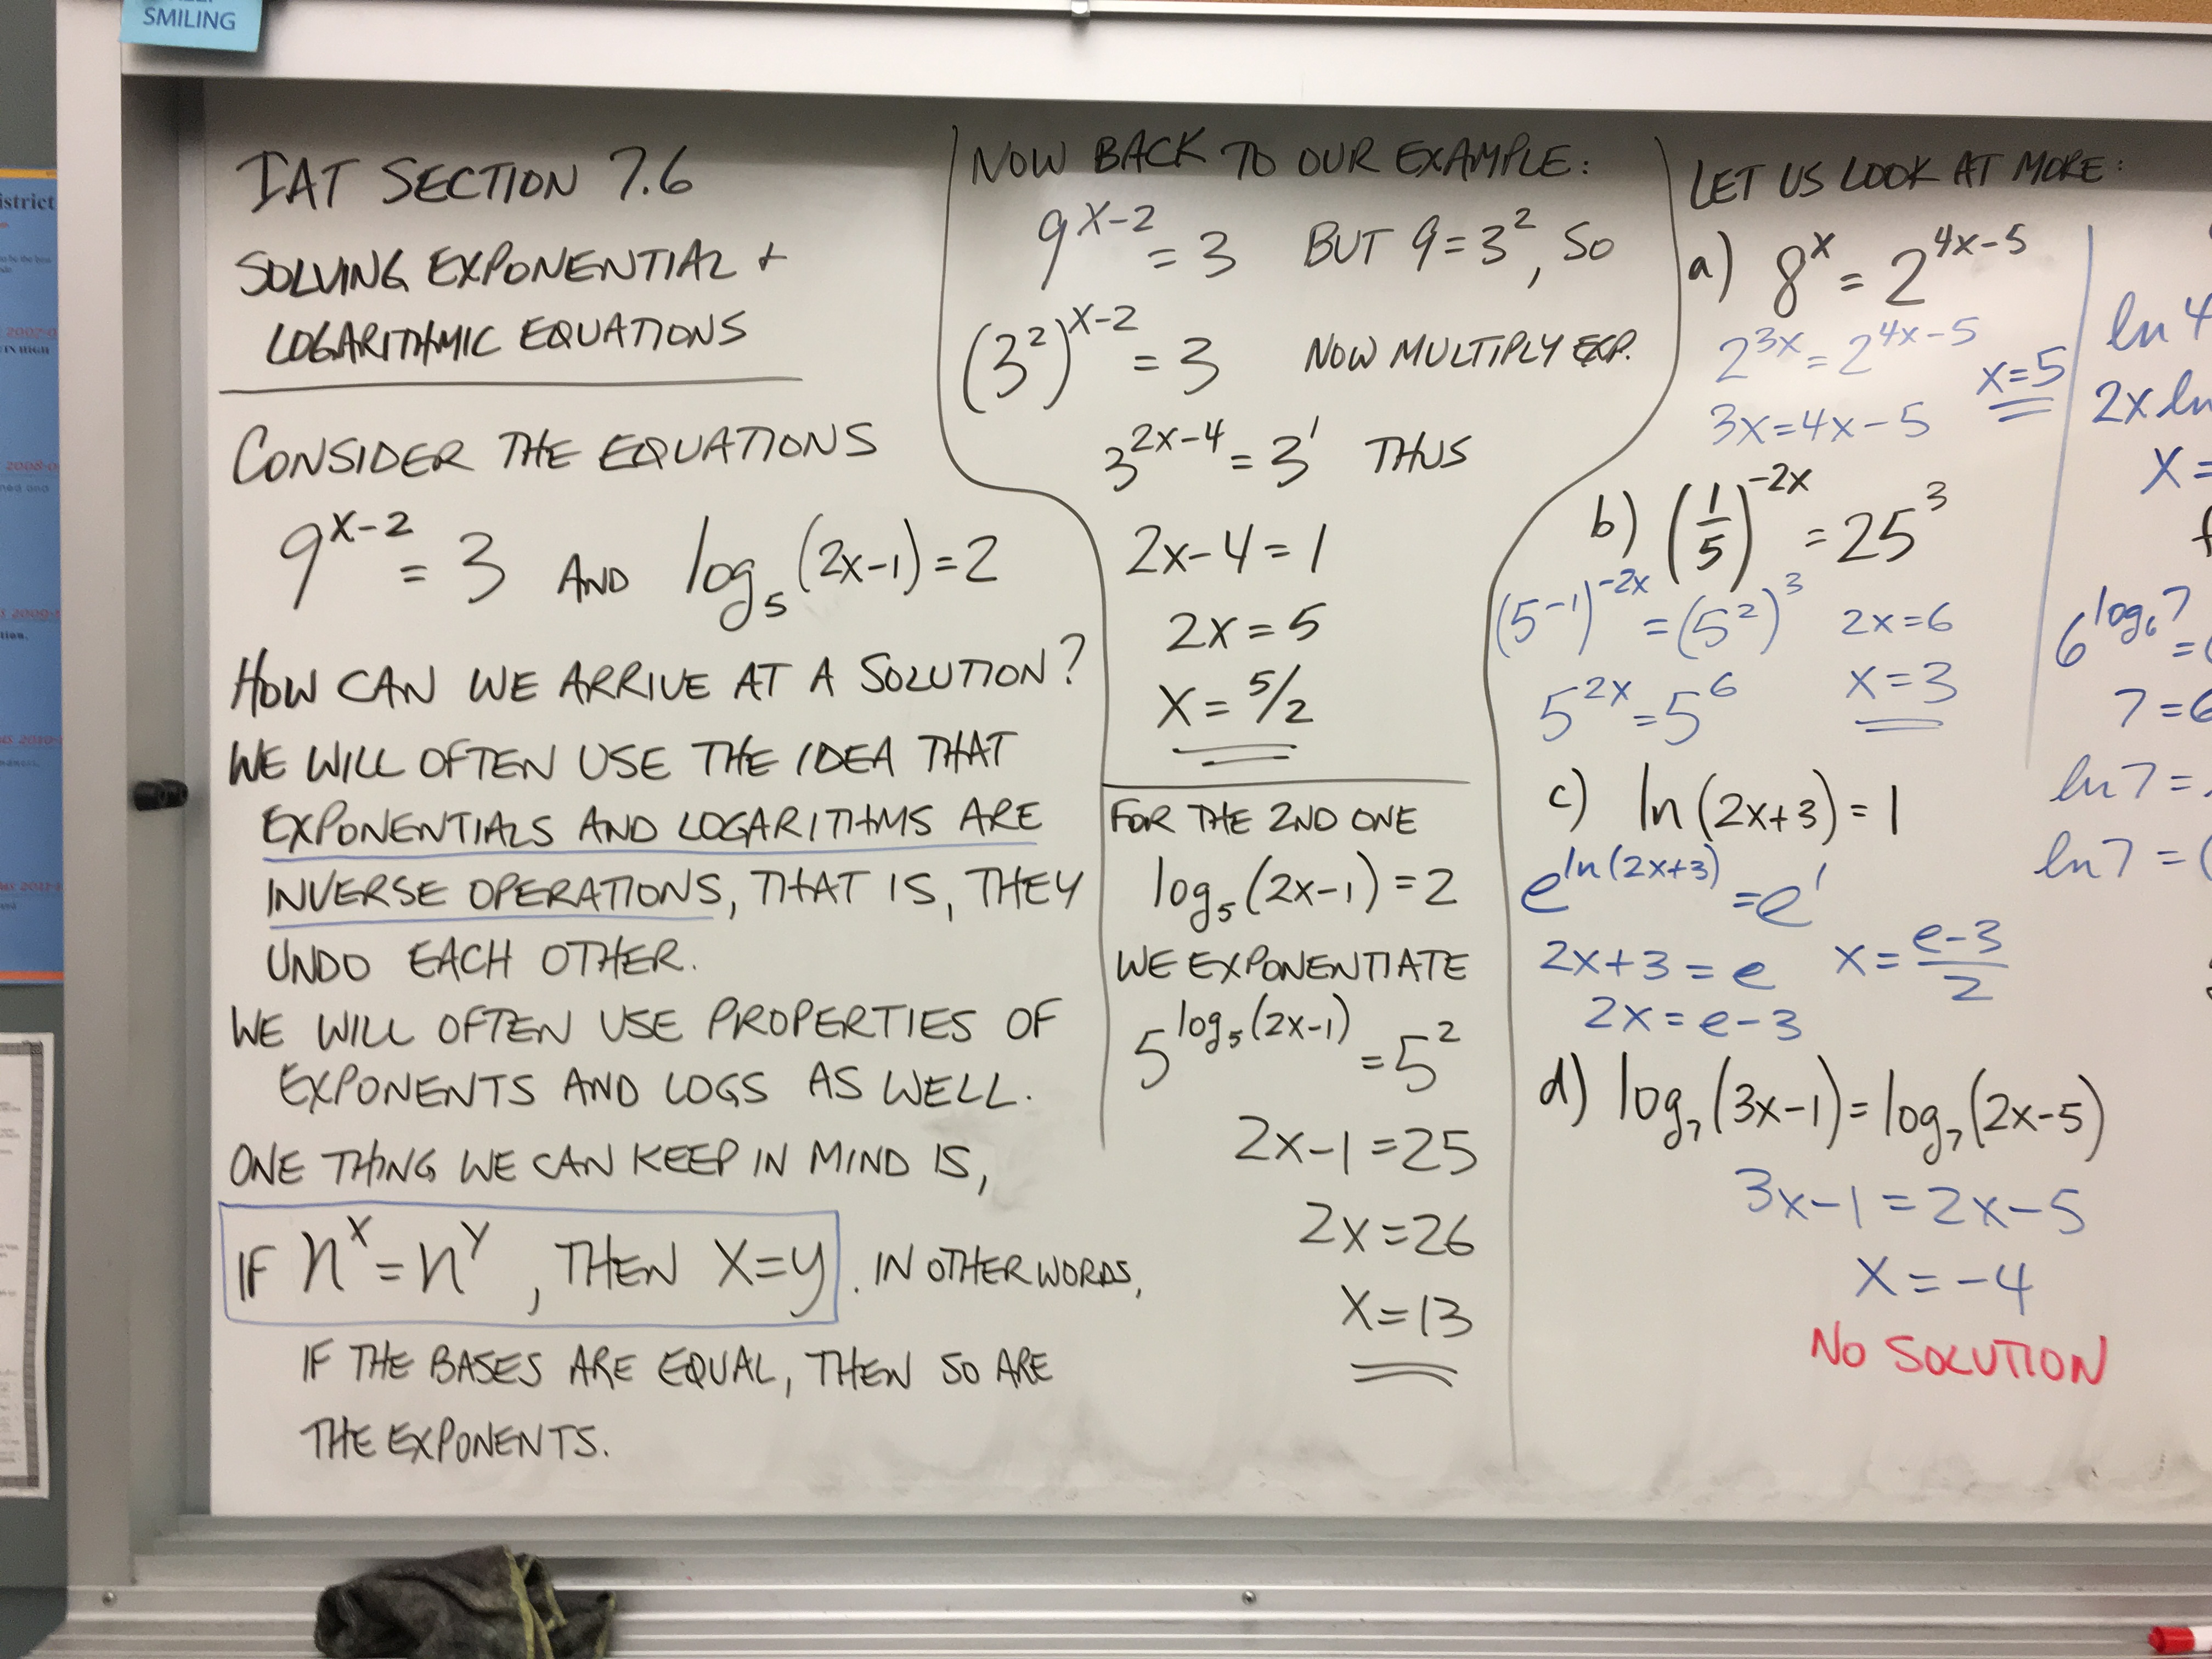 SMILING
IAT SECTION 7.6
SOLVING EXPONENTIAL +
LOGARITHMIC EQUATIONS
CONSIDER THE EQUATIONS
9^(x-2) = 3 AND log₅(2x-1) = 2
HOW CAN WE ARRIVE AT A SOLUTION?
WE WILL OFTEN USE THE IDEA THAT
EXPONENTIALS AND LOGARITHMS ARE
INVERSE OPERATIONS, THAT IS, THEY
UNDO EACH OTHER.
WE WILL OFTEN USE PROPERTIES OF
EXPONENTS AND LOGS AS WELL.
ONE THING WE CAN KEEP IN MIND IS,
IF n^x = n^y, THEN x=y. IN OTHER WORDS,
IF THE BASES ARE EQUAL, THEN SO ARE
THE EXPONENTS.
NOW BACK TO OUR EXAMPLE:
9^(x-2) = 3 BUT 9=3², SO
(3²)^(x-2) = 3 NOW MULTIPLY EXP.
3^(2x-4) = 3¹ THUS
2x-4=1
2x=5
x=5/2
FOR THE 2ND ONE
log₅(2x-1)=2
WE EXPONENTIATE
5^(log₅(2x-1)) = 5²
2x-1=25
2x=26
x=13
LET US LOOK AT MORE:
a) 8^x = 2^(4x-5)
2^(3x) = 2^(4x-5)
x=5
3x=4x-5
b) (1/5)^(-2x) = 25³
(5^(-1))^(-2x) = (5²)³ 2x=6
5^(2x) = 5⁶ x=3
c) ln(2x+3)=1
e^(ln(2x+3)) = e¹
2x+3=e x=(e-3)/2
2x=e-3
d) log₇(3x-1)=log₇(2x-5)
3x-1=2x-5
x=-4
NO SOLUTION
ln 4
2x ln
x=
6^(log₆7) =
7=6
ln7=
ln7=(
istrict
2008-0